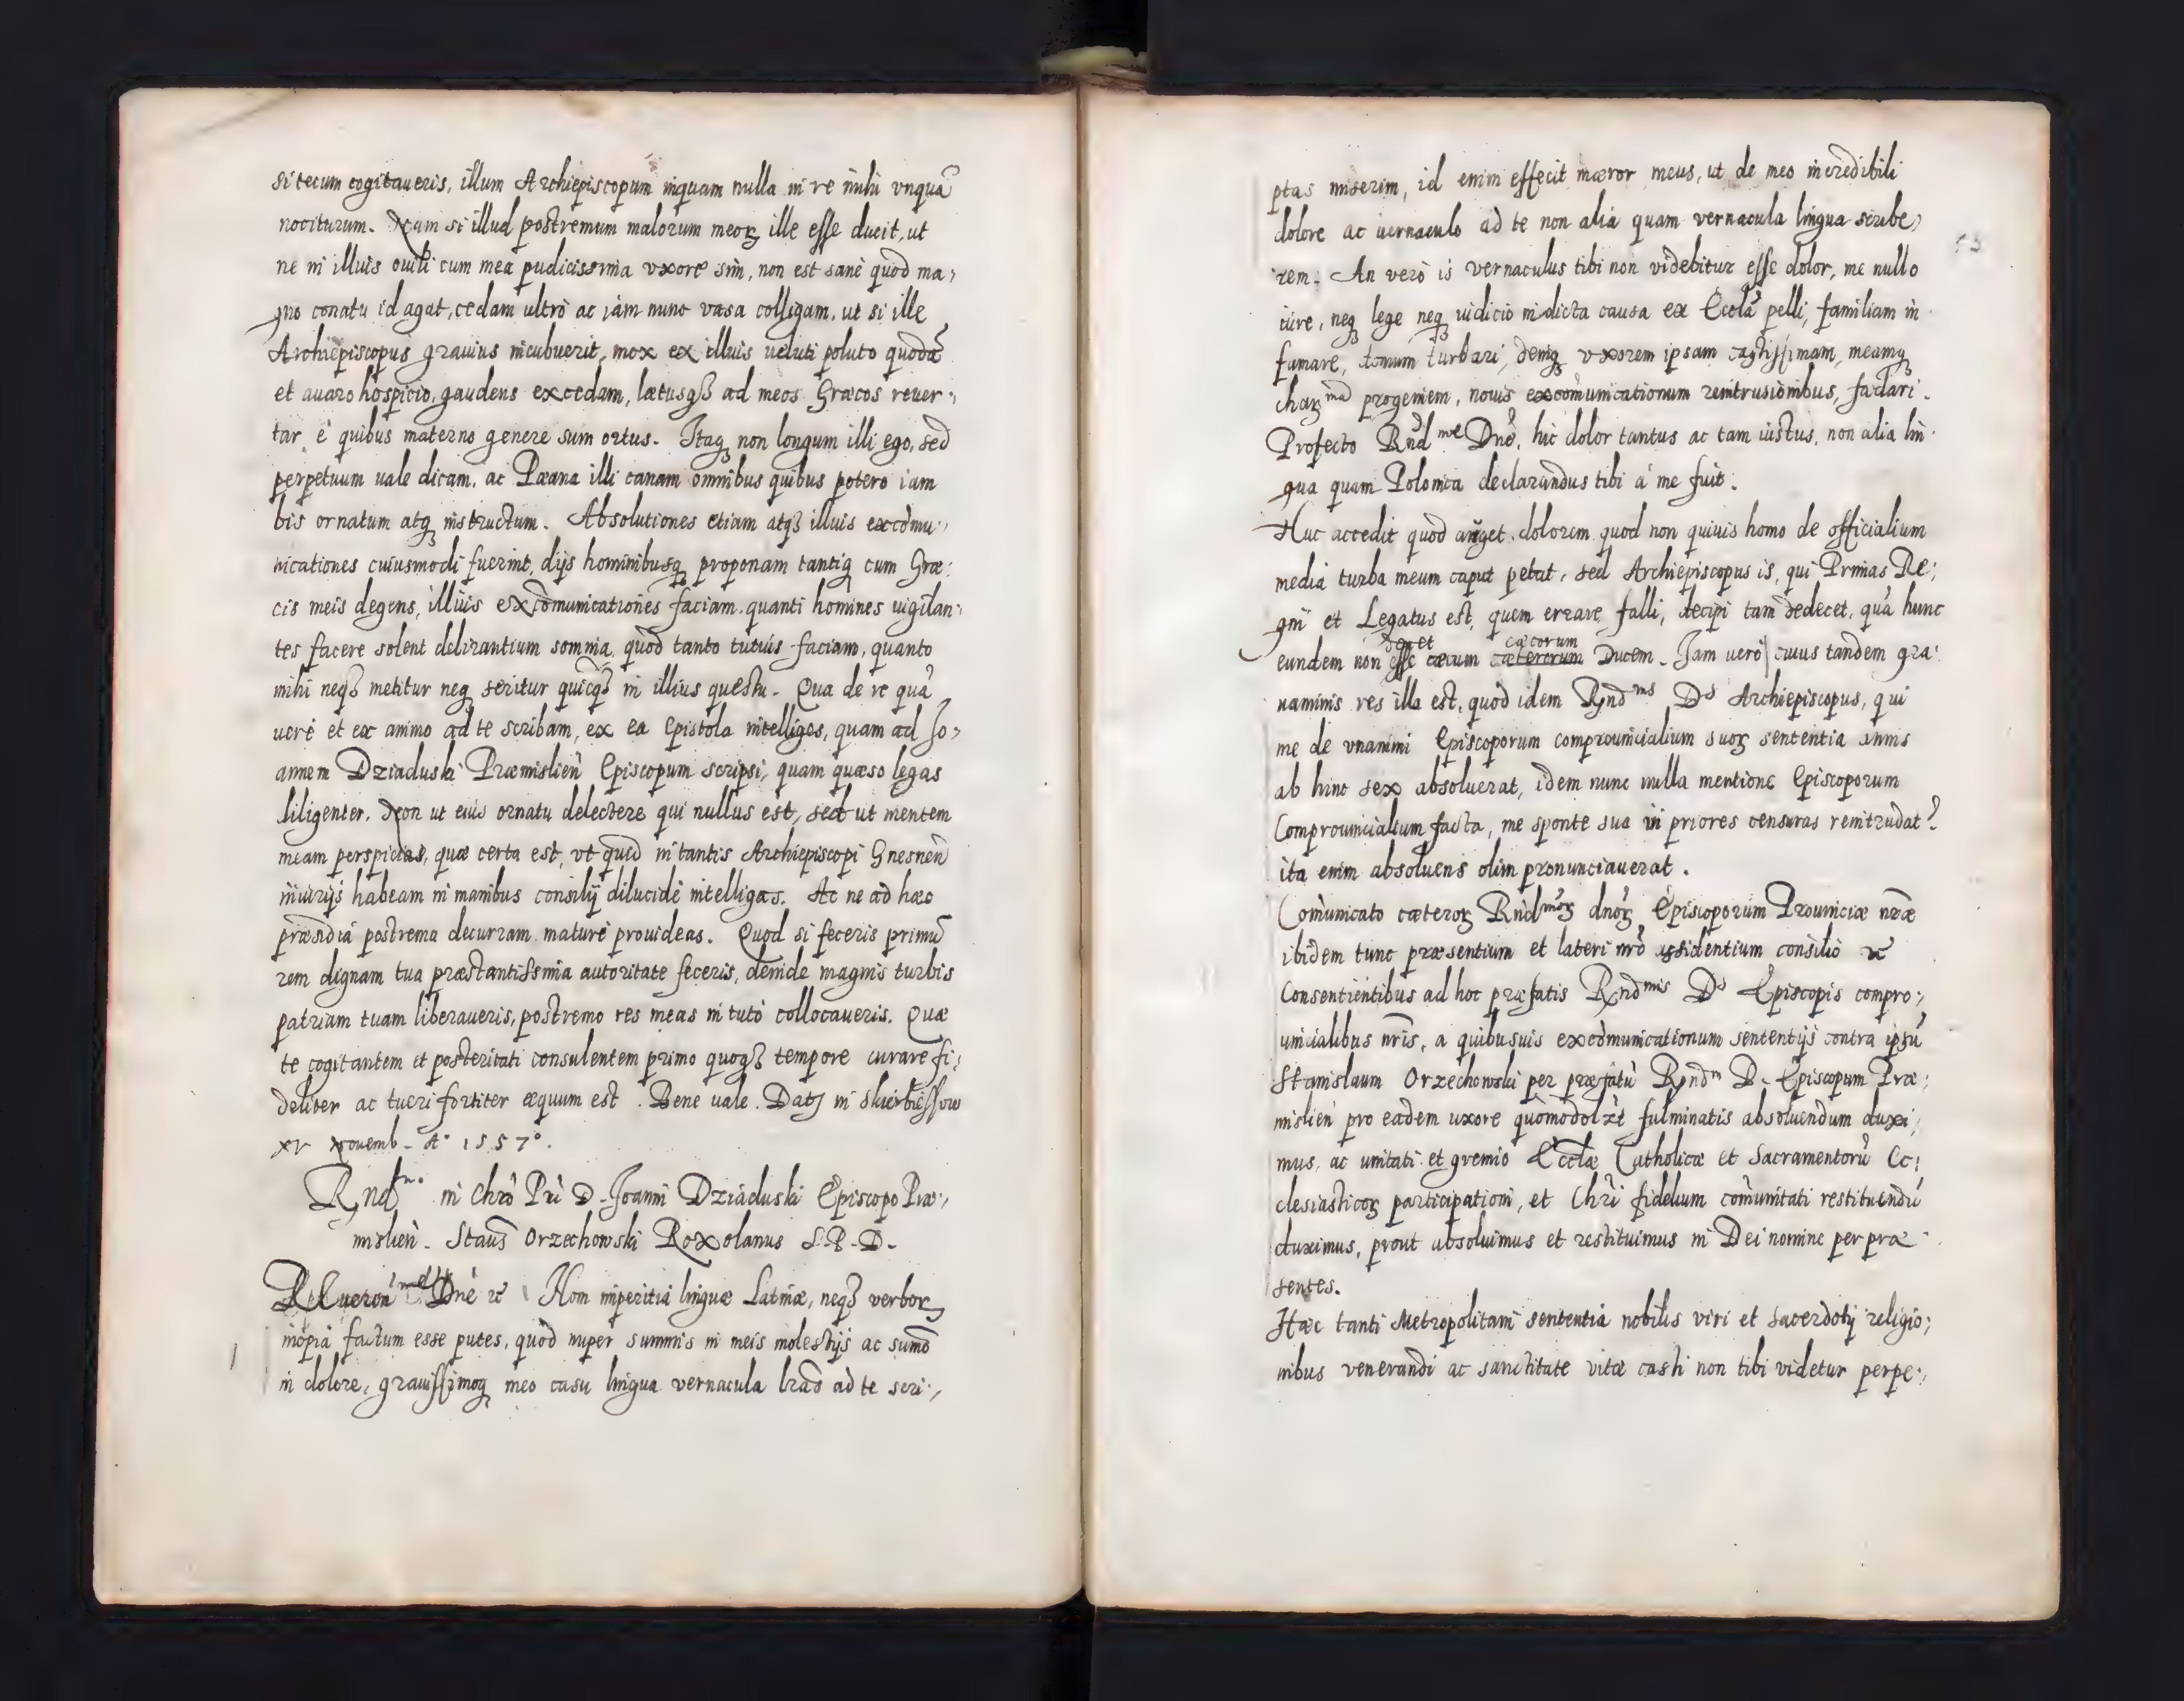 si tecum cogitaueris, illum Archiepiscopum inquam nulla in re mihi vnquā
nociturum. Nam si illud postremum malorum meoꝝ ille esse ducit, ut
ne in illius ouili cum mea pudicissima vxore sim, non est sanè quod ma,
gno conatu id agat, cedam ultrò ac iàm nunc vasa colligam, ut si ille
Archiepiscopus grauius incubuerit, mox ex illius veluti poluto quodā
et auaro hospicio, gaudens excedam, lætusqꝫ ad meos Græcos reuer,
tar è quibus materno genere sum ortus. Itaqꝫ non longum illi ego, sed
perpetuum uale dicam, ac Pæana illi canam omnibus quibus potero iam
bis ornatum atqꝫ instructum. Absolutiones etiam atqꝫ illius excōmu,
nicationes cuiusmodi fuerint, dijs hominibusqꝫ proponam tantiqꝫ cum Græ:
cis meis degens, illius excōmunicationes faciam quanti homines uigilan,
tes facere solent delirantium somnia, quod tanto tutius faciam, quanto
mihi neqꝫ metitur neqꝫ seritur quicqꝫ in illius questu. Qua de re quā
uerè et ex animo ad te scribam, ex ea Epistola intelliges, quam ad Jo,
annem Dziaduski Præmislień Episcopum scripsi, quam quæso legas
diligenter. Non ut eius ornatu delectere qui nullus est, sed ut mentem
meam perspicias, quæ certa est, vt quid in tantis Archiepiscopi Gnesneń
iniurijs habeam in manibus consilij dilucidè intelligas. Ac ne ad hæc
præsidia postrema decurram maturè prouideas. Quod si feceris primū
rem dignam tua præstantissima autoritate feceris, deinde magnis turbis
patriam tuam liberaueris, postremo res meas in tuto collocaueris. Quæ
te cogitantem et posteritati consulentem primo quoqꝫ tempore curare fi,
deliter ac tueri fortiter æquum est. Bene uale. Datꝫ in
xv Nouemb. A° 1557°.
Rnd^mo in Chrō Pri D. Joanni Dziaduski Episcopo Præ,
mislień. Staūs Orzechowski Roxolanus S.P.D.
Dnè ꝛc Non imperitia linguæ Latinæ, neqꝫ verboꝝ
inopia factum esse putes, quòd nuper summis in meis molestijs ac sumō
in dolore, grauissimoqꝫ meo casu lingua vernacula lrās ad te scri,
ptas miserim, id enim effecit mæror meus, ut de meo incredibili
dolore ac uernaculo ad te non alia quam vernacula lingua scribe,
rem. An verò is vernaculus tibi non videbitur esse dolor, me nullo
iure, neqꝫ lege neqꝫ iudicio indicta causa ex Eccla pelli, familiam in
famare, domum turbari, deniqꝫ vxorem ipsam castissimam, meamqꝫ
chaꝝ^ma progeniem, nouis excōmunicationum reintrusionibus, fædari.
Profecto Rnd^me Dnē, hic dolor tantus ac tam iustus, non alia lin
gua quam Polonica declarandus tibi à me fuit.
Huc accedit quod auget dolorem quod non quiuis homo de officialium
media turba meum caput petat, sed Archiepiscopus is, qui Primas Re,
gni et Legatus est, quem errare, falli, decipi tam dedecet, quā hunc
decet cæcorum
eundem non esse cæcum cæterorum Ducem. Jam uerò cuius tandem gra
uaminis res illa est, quod idem Rnd^ms D^s Archiepiscopus, qui
me de vnanimi Episcoporum comprouincialium suoꝝ sententia annis
ab hinc sex absoluerat, idem nunc nulla mentione Episcoporum
Comprouincialium facta, me sponte sua in priores censuras reintrudat?
ita enim absoluens olim pronunciauerat.
Comūnicato cæteroꝝ Rnd^moꝝ dnoꝝ Episcoporum Prouinciæ nræ
ibidem tunc præsentium et lateri nrō assidentium consilio ꝛc
Consentientibus ad hoc præfatis Rnd^mis D^s Episcopis compro,
uincialibus nrīs, a quibusuis excōmunicationum sententijs contra ipsū
Stanislaum Orzechowski per præfatū Rnd^m D. Episcopum Præ,
mislień pro eadem uxore quōmodolꝫt fulminatis absoluendum duxi,
mus, ac unitati et gremio Ecclæ Catholicæ et Sacramentorū Ec,
clesiasticoꝝ participationi, et Chrī fidelium comūnitati restituendū
duximus, prout absoluimus et restituimus in Dei nomine per præ
sentes.
Hæc tanti Metropolitani sententia nobilis viri et sacerdotij religio,
nibus venerandi ac sanctitate vitæ casti non tibi videtur perpe,